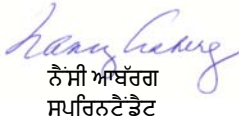 ਨੈਂਸੀ ਆਬੱਰਗ
ਸੁਪਰਿਨਟੈਂਡੈਂਟ